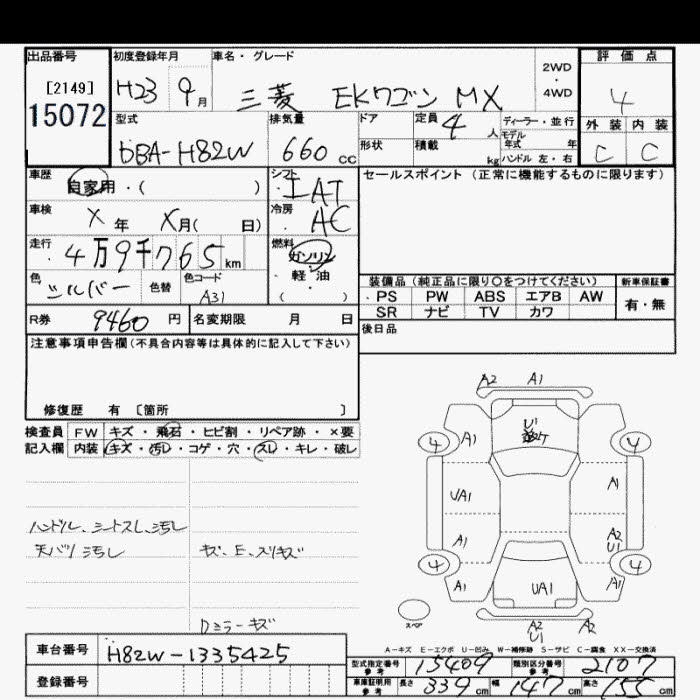 出品番号 初度登録年月 車名・グレード 評価点
[2149]
15072
H23 9月 三菱 EKワゴン MX
2WD
・
4WD
4
型式 排気量 ドア 定員 4人 ディーラー・並行
外装 内装
DBA-H82W 660cc 形状 積載 kg
モデル年式 年
ハンドル 左・右
C C
車歴 自家用・( )
シフト IAT
セールスポイント (正常に機能するものに限ります)
車検 X年 X月( 日)
冷房 AC
走行 4万9千765km
燃料 ガソリン・軽・油( )
色 シルバー 色替 色コード A31
装備品 (純正品に限り〇をつけてください) 新車保証書
PS PW ABS エアB AW 有・無
SR ナビ TV カワ
R券 9460円 名変期限 月 日
後日品
注意事項申告欄(不具合内容等は具体的に記入して下さい)
修復歴 有 〔箇所 〕
検査員記入欄 FW キズ・飛石・ヒビ割・リペア跡・×要
内装 キズ・汚レ・コゲ・穴・スレ・キレ・破レ
ハンドル、シートスレ、汚レ
天バリ汚レ キズ、E、スリキズ
Dミラーキズ
A2 A1
U1
4 A1 4
UA1 A1
A1 A2
U1
4 4
A1 UA1 A1
スペア A2 A2
U1
A-キズ E-エクボ U-凹み W-補修跡 S-サビ C-腐食 XX-交換済
車台番号 H82W-1335425
型式指定番号 参考 15409 類別区分番号 参考 2107
登録番号
車庫証明用 参考 長さ 339cm 幅 147cm 高さ 155cm